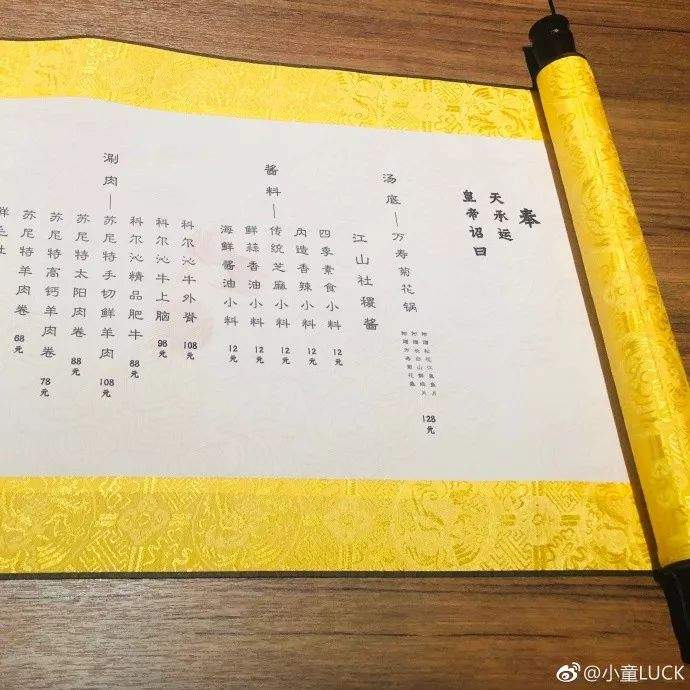 奉
天承运
皇帝诏曰
汤底—万寿菊花锅
128元
江山社稷酱
酱料—
四季素食小料 12元
内造香辣小料 12元
传统芝麻小料 12元
鲜蒜香油小料 12元
海鲜酱油小料 12元
涮肉—
科尔沁牛外脊 108元
科尔沁牛上脑 98元
科尔沁精品肥牛 88元
苏尼特手切鲜羊肉 108元
苏尼特太阳肉卷 88元
苏尼特高钙羊肉卷 78元
苏尼特羊肉卷 68元
@小童LUCK